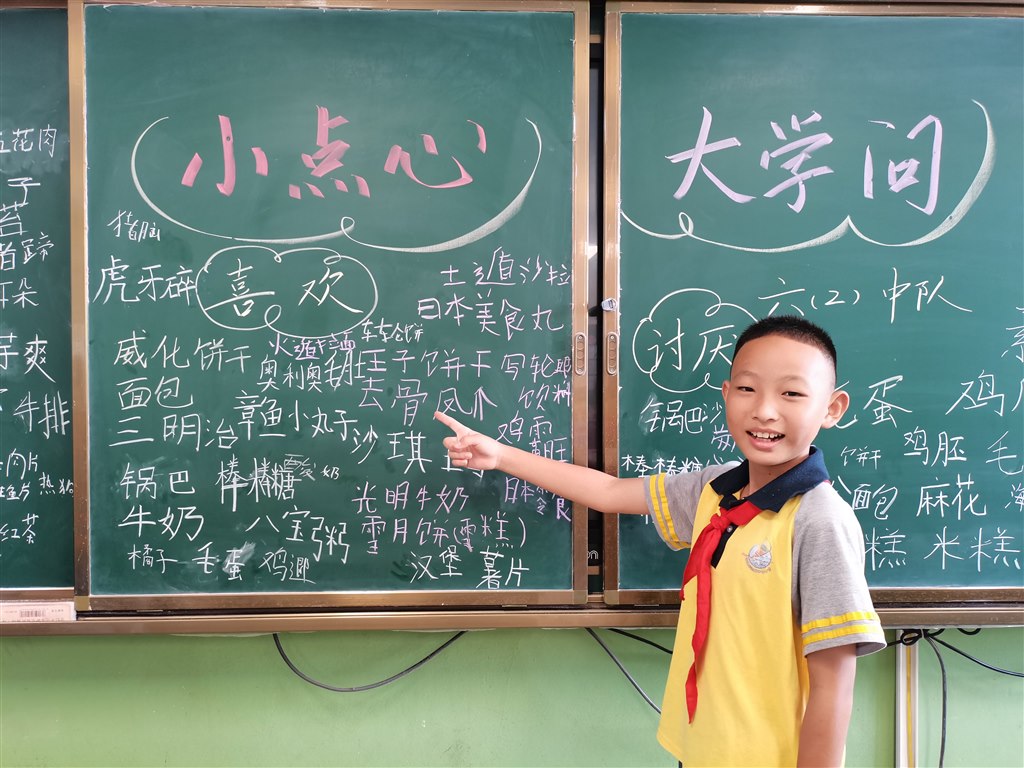 花肉
子
苔
蹄
耳朵
芋爽
牛排
肉片
红茶
小点心
猪脑
虎牙碎
喜欢
土逍沙拉
日本美食丸
威化饼干
奥利奥
饼干
写轮眼
面包
去骨凤爪
饮料
三明治
章鱼小丸子
沙琪
鸡
锅巴
棒棒糖
奶
光明牛奶
日本
食
牛奶
八宝粥
雪月饼(雪糕)
橘子
毛蛋
鸡
汉堡
薯片
大学问
六(2)中队
讨厌
蛋
鸡
锅巴
饼干
鸡胚
毛
棒棒糖
面包
麻花
糕
米糕